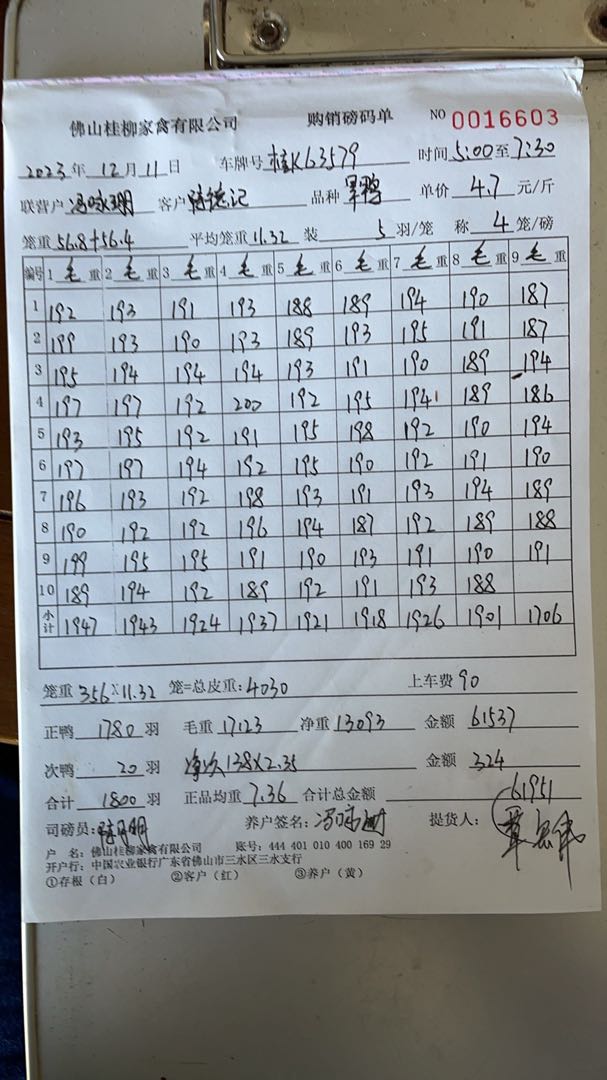 佛山桂柳家禽有限公司 购销磅码单 NO 0016603
2023年12月11日 车牌号 桂K63579 时间5:00至7:30
联营户 冯咏珊 客户 陆德记 品种 单价 4.7 元/斤
笼重56.8+56.4 平均笼重11.32 装 5 羽/笼 称 4 笼/磅
编号 1 毛 重 2 毛 重 3 毛 重 4 毛 重 5 毛 重 6 毛 重 7 毛 重 8 毛 重 9 毛 重
1 192 193 191 193 188 189 194 190 187
2 199 193 190 193 189 193 195 191 187
3 195 194 194 194 193 191 190 189 194
4 197 197 192 200 192 195 194 189 186
5 193 195 192 191 195 198 192 190 194
6 197 197 194 192 195 190 192 191 190
7 196 193 192 198 193 191 193 194 189
8 190 192 192 196 194 187 192 189 188
9 199 195 195 191 190 193 191 190 191
10 189 194 192 189 192 191 193 188
小计 1947 1943 1924 1937 1921 1918 1926 1901 1706
笼重 356×11.32 笼=总皮重:4030 上车费 90
正鸭 1780 羽 毛重 17123 净重 13093 金额 61537
次鸭 20 羽 净次138×2.35 金额 324
合计 1800 羽 正品均重 7.36 合计总金额 61951
司磅员: 养户签名: 提货人:
户 名: 佛山桂柳家禽有限公司 账号: 444 401 010 400 169 29
开户行: 中国农业银行广东省佛山市三水区三水支行
①存根（白） ②客户（红） ③养户（黄）